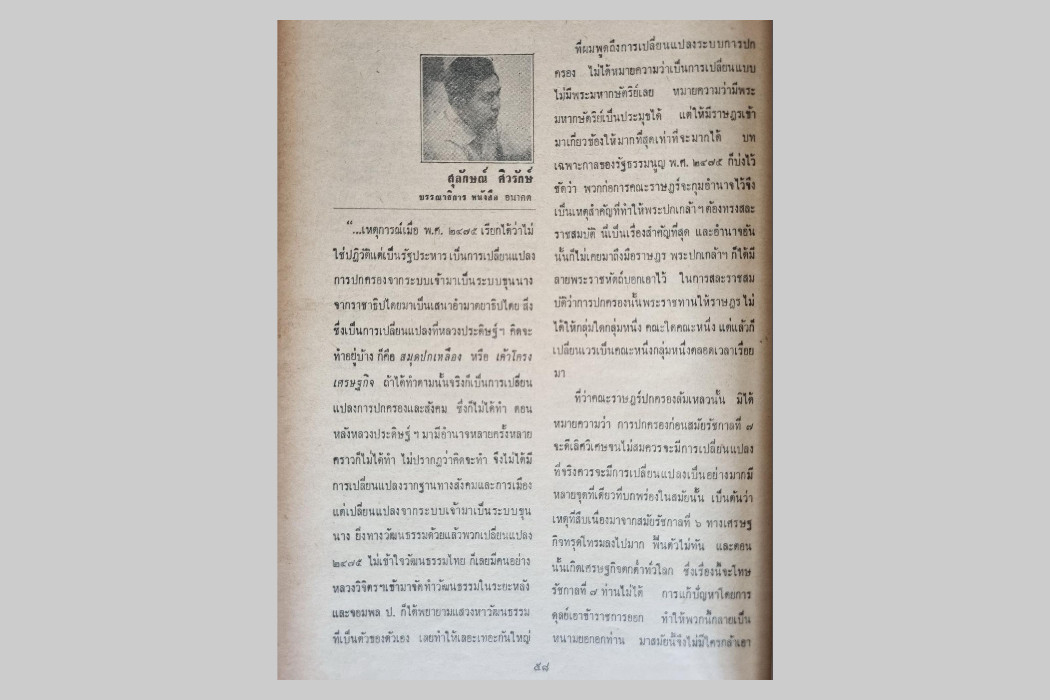 สุลักษณ์ ศิวรักษ์
บรรณาธิการ หนังสือ อนาคต
“...เหตุการณ์เมื่อ พ.ศ. ๒๔๗๕ เรียกได้ว่าไม่
ใช่ปฏิวัติแต่เป็นรัฐประหาร เป็นการเปลี่ยนแปลง
การปกครองจากระบบเจ้ามาเป็นระบบขุนนาง
จากราชาธิปไตยมาเป็นเสนาอำมาตยาธิปไตย สิ่ง
ซึ่งเป็นการเปลี่ยนแปลงที่หลวงประดิษฐ์ฯ คิดจะ
ทำอยู่บ้าง ก็คือ สมุดปกเหลือง หรือ เค้าโครง
เศรษฐกิจ ถ้าได้ทำตามนั้นจริงก็เป็นการเปลี่ยน
แปลงการปกครองและสังคม ซึ่งก็ไม่ได้ทำ ตอน
หลังหลวงประดิษฐ์ ฯ มามีอำนาจหลายครั้งหลาย
คราวก็ไม่ได้ทำ ไม่ปรากฏว่าคิดจะทำ จึงไม่ได้มี
การเปลี่ยนแปลงรากฐานทางสังคมและการเมือง
แต่เปลี่ยนแปลงจากระบบเจ้ามาเป็นระบบขุน
นาง ยิ่งทางวัฒนธรรมด้วยแล้วพวกเปลี่ยนแปลง
๒๔๗๕ ไม่เข้าใจวัฒนธรรมไทย ก็เลยมีคนอย่าง
หลวงวิจิตรฯเข้ามาจัดทำวัฒนธรรมในระยะหลัง
และจอมพล ป. ก็ได้พยายามแสวงหาวัฒนธรรม
ที่เป็นตัวของตัวเอง เลยทำให้เลอะเทอะกันใหญ่
ที่ผมพูดถึงการเปลี่ยนแปลงระบบการปก
ครอง ไม่ได้หมายความว่าเป็นการเปลี่ยนแบบ
ไม่มีพระมหากษัตริย์เลย หมายความว่ามีพระ
มหากษัตริย์เป็นประมุขได้ แต่ให้มีราษฎรเข้า
มาเกี่ยวข้องให้มากที่สุดเท่าที่จะมากได้ บท
เฉพาะกาลของรัฐธรรมนูญ พ.ศ. ๒๔๗๕ ก็บ่งไว้
ชัดว่า พวกก่อการคณะราษฎร์จะกุมอำนาจไว้จึง
เป็นเหตุสำคัญที่ทำให้พระปกเกล้า ฯ ต้องทรงสละ
ราชสมบัติ นี่เป็นเรื่องสำคัญที่สุด และอำนาจอัน
นั้นก็ไม่เคยมาถึงมือราษฎร พระปกเกล้าฯ ก็ได้มี
ลายพระราชหัตถ์บอกเอาไว้ ในการสละราชสม
บัติว่าการปกครองนั้นพระราชทานให้ราษฎร ไม่
ได้ให้กลุ่มใดกลุ่มหนึ่ง คณะใดคณะหนึ่ง แต่แล้วก็
เปลี่ยนเวรเป็นคณะหนึ่งกลุ่มหนึ่งตลอดเวลาเรื่อย
มา
ที่ว่าคณะราษฎร์ปกครองล้มเหลวนั้น มิได้
หมายความว่า การปกครองก่อนสมัยรัชกาลที่ ๗
จะดีเลิศวิเศษจนไม่สมควรจะมีการเปลี่ยนแปลง
ที่จริงควรจะมีการเปลี่ยนแปลงเป็นอย่างมากมี
หลายจุดทีเดียวที่บกพร่องในสมัยนั้น เป็นต้นว่า
เหตุที่สืบเนื่องมาจากสมัยรัชกาลที่ ๖ ทางเศรษฐ
กิจทรุดโทรมลงไปมาก ฟื้นตัวไม่ทัน และตอน
นั้นเกิดเศรษฐกิจตกต่ำทั่วโลก ซึ่งเรื่องนี้จะโทษ
รัชกาลที่ ๗ ท่านไม่ได้ การแก้ปัญหาโดยการ
ดุลย์เอาข้าราชการออก ทำให้พวกนี้กลายเป็น
หนามยอกอกท่าน มาสมัยนี้จึงไม่มีใครกล้าเอา
๕๘